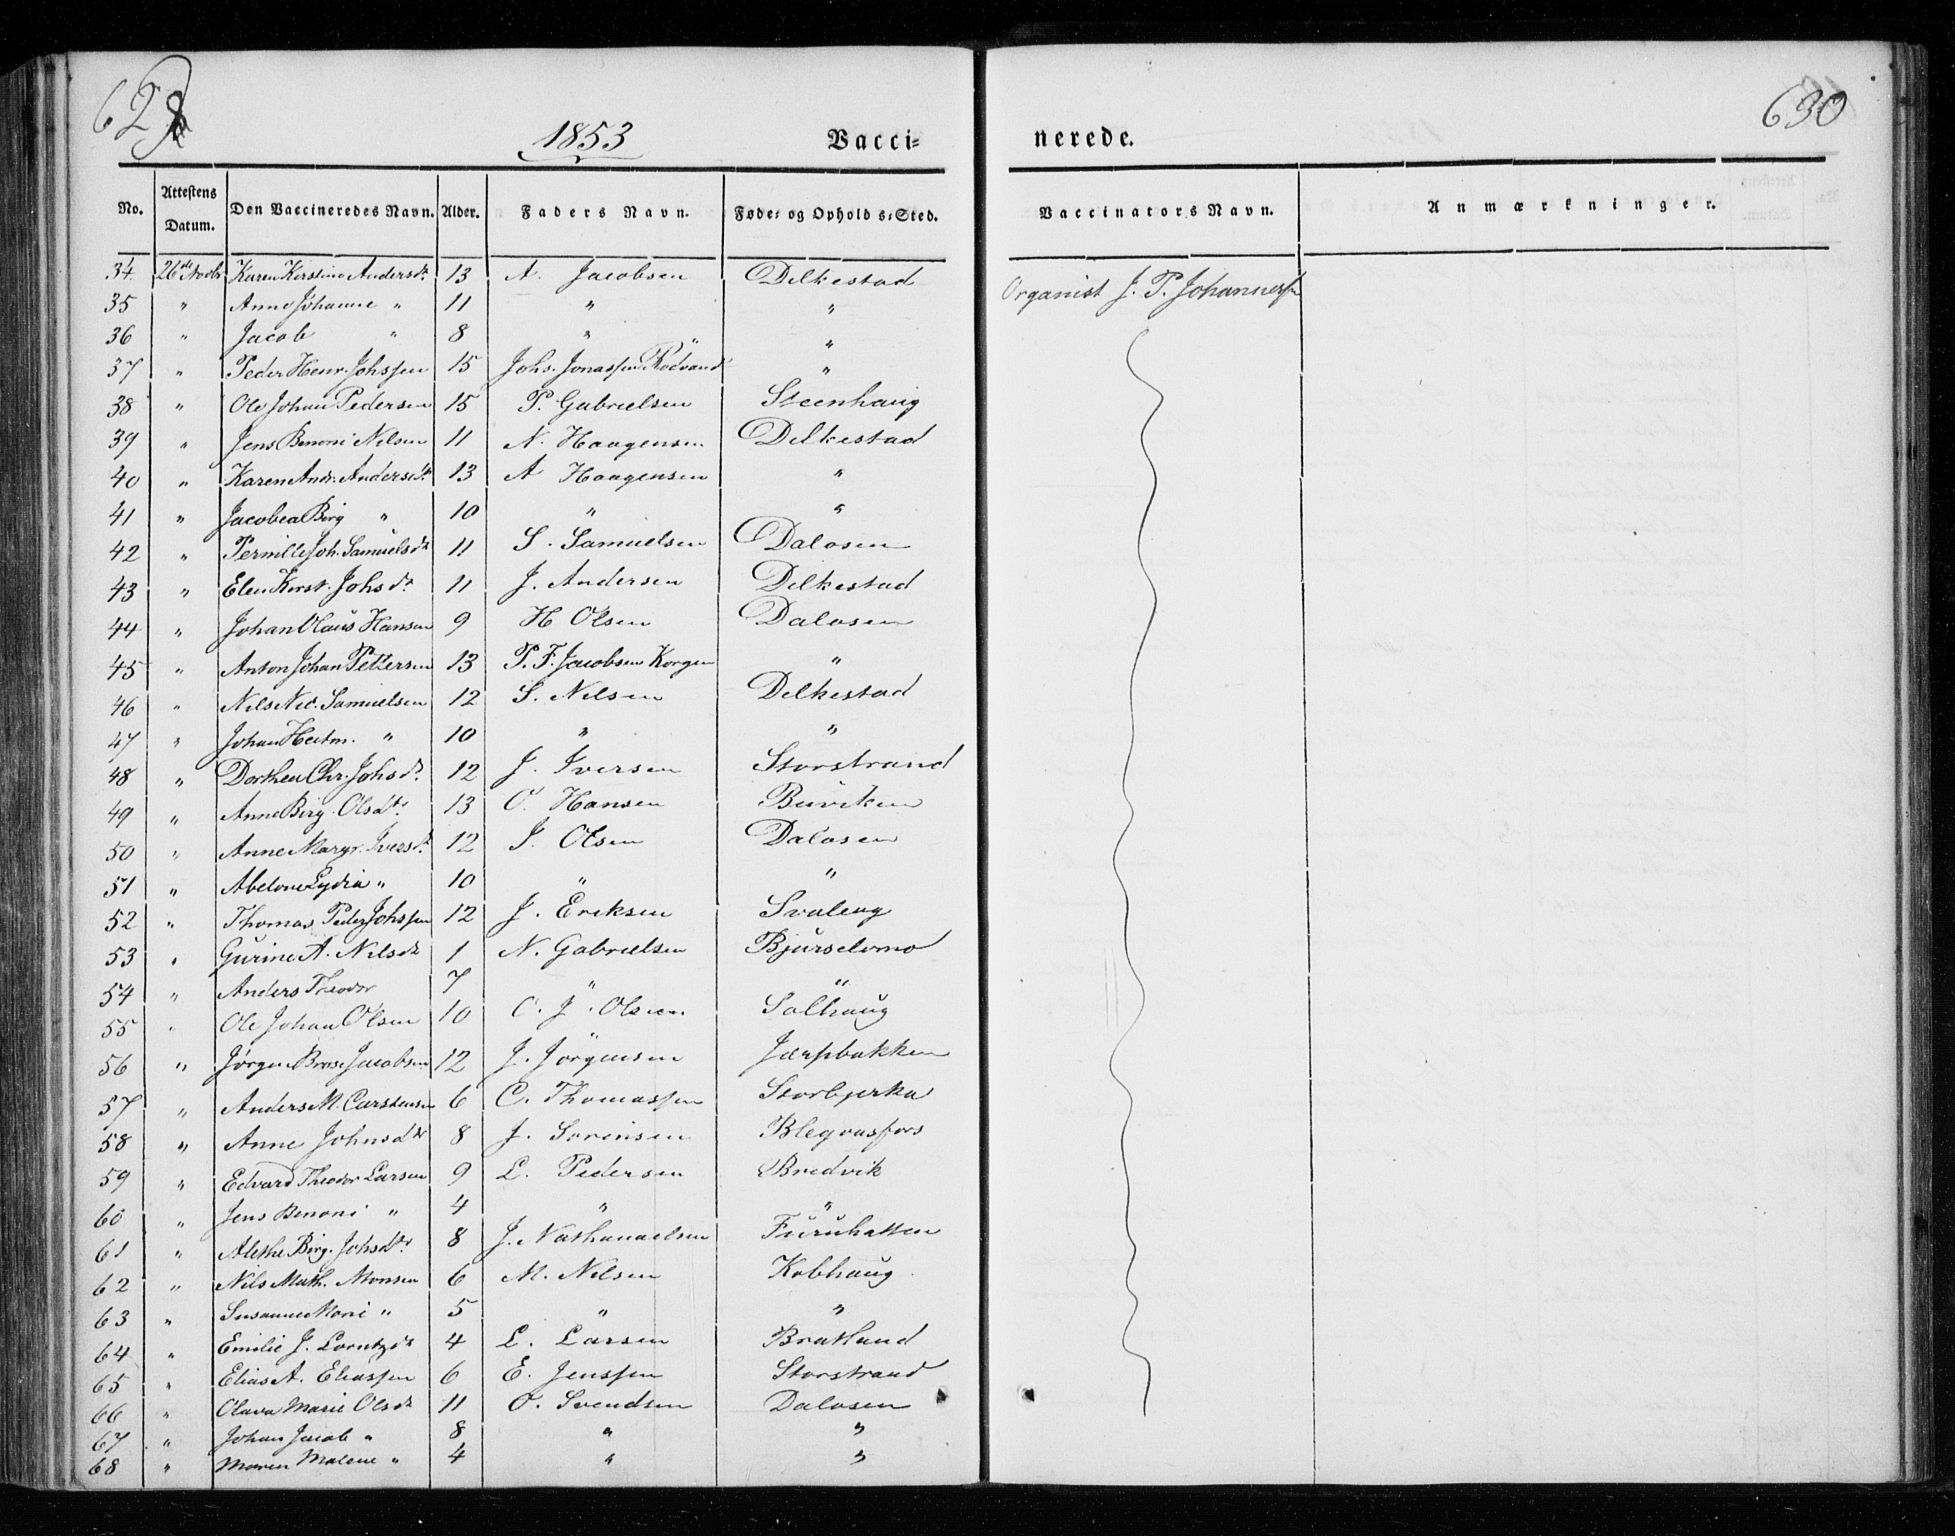 629
1853
Vacci=
nerede.
630
No. Attestens Datum. Den Vaccineredes Navn. Alder. Faders Navn. Føde= og Opholds=Sted. Vaccinators Navn. Anmærkninger.
34 26de Novbr Karen Kirstine Andersdr. 13 A. Jacobsen Dilkestad Organist J. P. Johannessen
35 " Anne Johanne " 11 " "
36 " Jacob " 8 " "
37 " Peder Henr. Johssen 15 Johs. Jonassen Rödvand "
38 " Ole Johan Pedersen 15 P. Gabrielsen Steenhaug
39 " Jens Benoni Nilsen 11 N. Haagensen Dilkestad
40 " Karen Andr. Andersdr. 13 A Haagensen "
41 " Jacobea Birg " 10 " "
42 " Pernille Joh. Samuelsdr 11 S. Samuelsen Dalosen
43 " Elen Kirst. Johsdr. 11 J. Andersen Dilkestad
44 " Johan Olaus Hansen 9 H Olsen Dalosen
45 " Anton Johan Pettersen 13 P. F. Jacobsen Korgen "
46 " Nils Nic. Samuelsen 12 S. Nilsen Dilkestad
47 " Johan Heitm. " 10 " "
48 " Dorthea Chr. Johsdr. 12 J. Iversen Storstrand
49 " Anne Birg. Olsdtr 13 O. Hansen Buviken
50 " Anne Margr. Iversdr. 12 I. Olsen Dalosen
51 " Abelone Lydia " 10 " "
52 " Thomas Peder Johssen 12 J. Eriksen Svaleng
53 " Gurine A. Nilsdr 1 N. Gabrielsen Bjurselvmo
54 " Anders Theodor 7 " "
55 " Ole Johan Olsen 10 O. J. Olsen Solhaug
56 " Jørgen Brose Jacobsen 12 J. Jörgensen Jærpbakken
57 " Anders M. Carstensen 6 C. Thomassen Storbjerka
58 " Anne Johnsdtr 8 J. Sörensen Blegvasfors
59 " Edvard Theodor Larsen 9 L. Pedersen Bredvik
60 " Jens Benoni " 4 " "
61 " Alethe Birg. Johsdtr 8 J. Nathanaelsen Furuhatten
62 " Nils Math. Monsen 6 M. Nilsen Kobhaug
63 " Susanne Mari " 5 " "
64 " Emilie J. Lorntzdr 4 L. Larsen Bratland
65 " Elias A. Eliassen 6 E. Jenssen Storstrand
66 " Olava Marie Olsdr 11 O. Svendsen Dalosen
67 " Johan Jacob " 8 " "
68 " Maren Malene " 4 " "